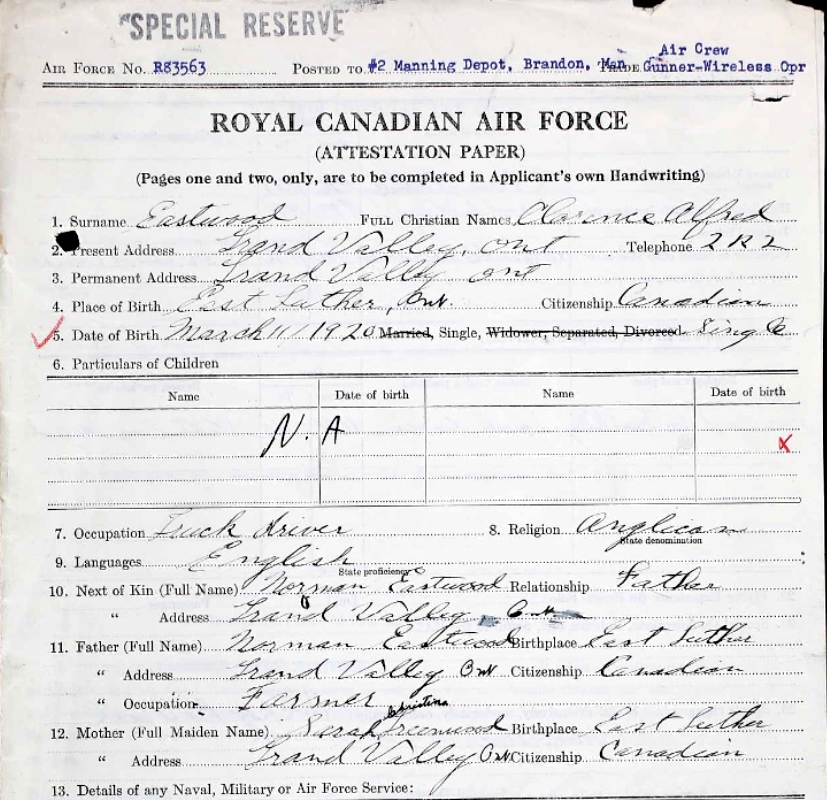 "SPECIAL RESERVE"
AIR FORCE NO. R83563 POSTED TO #2 Manning Depot, Brandon, Man TRADE Air Crew Gunner-Wireless Opr
ROYAL CANADIAN AIR FORCE
(ATTESTATION PAPER)
(Pages one and two, only, are to be completed in Applicant's own Handwriting)
1. Surname Eastwood FULL Christian Names Clarence Alfred
2. Present Address Grand Valley, Ont Telephone 2 R 2
3. Permanent Address Grand Valley Ont
4. Place of Birth East Luther, Ont. Citizenship Canadian
5. Date of Birth March 11/1920 Married, Single, Widower, Separated, Divorced. Single
6. Particulars of Children
Name Date of birth Name Date of birth
N. A
x
7. Occupation Truck driver 8. Religion Anglican
State denomination
9. Languages English
State proficiency
10. Next of Kin (Full Name) Norman Eastwood Relationship Father
" Address Grand Valley Ont
11. Father (Full Name) Norman Eastwood Birthplace East Luther
" Address Grand Valley Ont Citizenship Canadian
" Occupation Farmer
Christina
12. Mother (Full Maiden Name) Sarah Greenwood Birthplace East Luther
" Address Grand Valley Ont Citizenship Canadian
13. Details of any Naval, Military or Air Force Service: